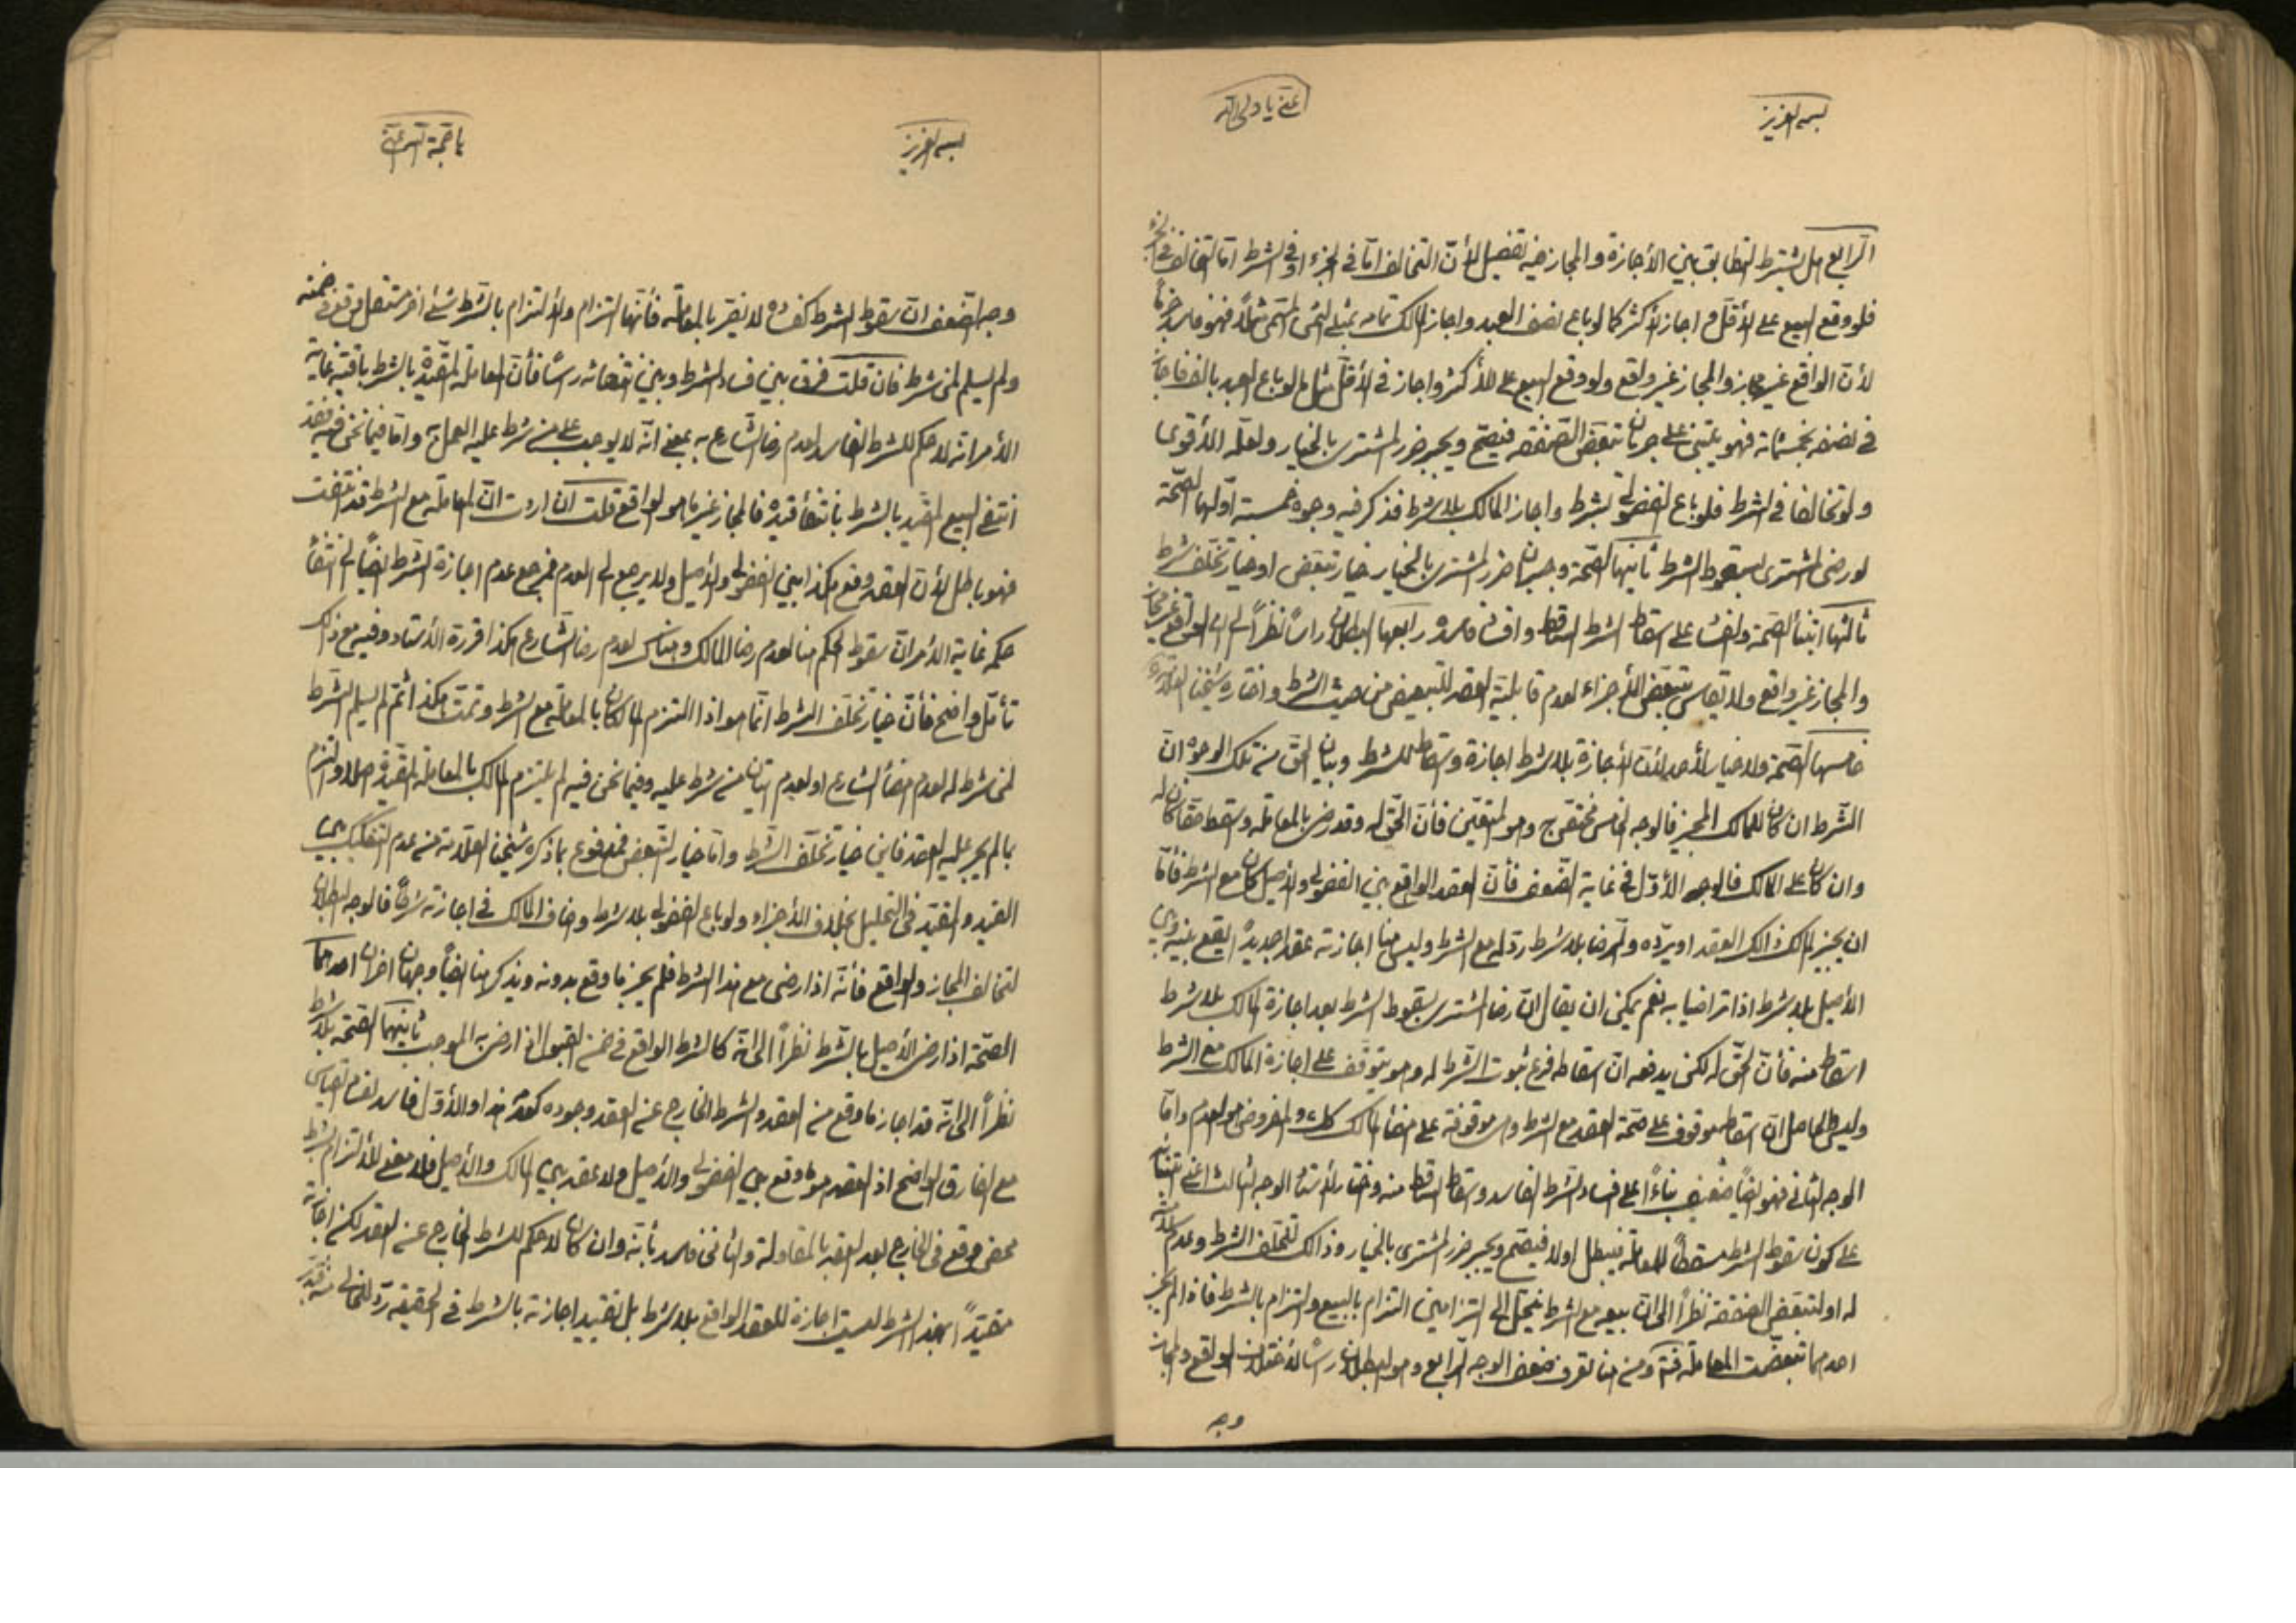 بسمه العزيز
اغثني يا ولي الله
الرابع هل يشترط التطابق بين الأجازة والمجاز فيه تفصيل لأن التخالف امّا في الجزء او في الشرط امّا التخالف في الجزء
فلو وقع البيع على الأقل واجاز الأكثر كما لو باع نصف العبد واجاز المالك تمامه بمثل الثمن المسمى مثلاً فهو فاسد جزماً
لأن الواقع غير مجاز والمجاز غير واقع ولو وقع البيع على الأكثر واجاز في الأقل مثل ما لو باع العبد بالف فاجاز
في نصفه بخمسمائة فهو يبتني على جريان تبعض الصفقه فيصح ويجبر ضرر المشتري بالخيار ولعله الأقوى
ولو تخالفا في الشرط فلو باع الفضولي بشرط واجاز المالك بلا شرط فذكر فيه وجوه خمسة اوّلها الصحّة
لو رضى المشتري بسقوط الشرط ثانيها الصحّة وجبران ضرر المشتري بالخيار خيار تبعض او خيار تخلف شرط
ثالثها ابتناء الصحة والفساد على اسقاط الشرط الساقط وافساد فاسده رابعها البطلان رأساً نظراً الى ان الواقع غير مجاز
والمجاز غير واقع ولا يقاس بتبعض الأجزاء لعدم قابلية العقد للتبعيض من حيث الشرط واختاره شيخنا العلامة
خامسها الصحة ولا خيار لأحد لأن الأجازة بلا شرط اجازة واسقاط للشرط وبيان الحق من تلك الوجوه ان
الشرط ان كان للمالك المجيز فالوجه الخامس محقق ح وهو المتعين فأن الحق له وقد رضى بالمعاملة واسقط حقاً كان له
وان كان على المالك فالوجه الأوّل في غاية الضعف فأن العقد الواقع بين الفضولي والأصيل كان مع الشرط فأما
ان يجيز المالك ذالك العقد او يردّه والرضا بلا شرط ردّ له مع الشرط وليس هنا اجازته عقداً جديداً ليقع بينه وبين
الأصيل بلا شرط اذا تراضيا به نعم يمكن ان يقال انّ رضا المشتري بسقوط الشرط بعد اجازة المالك بلا شرط
اسقاط منه فأن الحق له لكن يدفعه ان اسقاطه فرع ثبوت الشرط له وهو يتوقف على اجازة المالك مع الشرط
وليس الحاصل ان اسقاطه موقوف على صحة العقد مع الشرط وهي موقوفة على امضاء المالك كذلك والمفروض هو العدم وامّا
الوجه الثاني فهو ايضاً ضعيف بناءً على فساد الشرط الفاسد واسقاط الساقط منه واختار الأستاد الوجه الثالث اعني ابتناء
على كون سقوط الشرط مسقطاً للمعاملة فيبطل اولا فيصح ويجبر ضرر المشتري بالخيار وذالك لتخلف الشرط وعدم سلامته
له او لتبعض الصفقة نظراً الى ان بيعه مع الشرط ينحل الى التزامين التزام بالبيع والتزام بالشرط فاذا لم يجز
احدهما تبعضت المعاملة ومن هنا تعرف ضعف الوجه الرابع وهو البطلان رأساً لأختلاف الواقع والمجاز
وجه
بسمه العزيز
يا حجة الله اغثني
وجه الضعف ان سقوط الشرط كفساده لا يضر بالمعاملة فأنها التزام والألتزام بالشرط شئ اخر مستقل وقع في ضمنه
ولم يسلم لمن شرط فان قلت فرق بين فساد الشرط وبين انتفائه رأساً فأن المعاملة المقيّدة بالشرط باقية غاية
الأمر انه لا حكم للشرط الفاسد لعدم رضا الشارع به بمعنى انّه لا يوجب على من شرط عليه العمل به وامّا فيما نحن فيه فقد
انتفى البيع المقيد بالشرط بانتفاء قيده فالمجاز غير ما هو الواقع قلت ان اردت ان المعاملة مع الشرط قد انتفت
فهو باطل لأن العقد وقع هكذا بين الفضولي والأصيل ولا يرجع الى العدم فمرجع عدم اجازة الشرط ايضاً الى انتفاء
حكمه غاية الأمر ان سقوط الحكم هنا لعدم رضا المالك وهناك لعدم رضا الشارع هكذا قرره الأستاد وفيه مع ذالك
تأمّل واضح فأن خيار تخلف الشرط انما هو اذا التزم المالكان بالمعاملة مع الشرط وتمت هكذا ثم لم يسلم الشرط
لمن شرط له لعدم امضاء الشارع او لعدم اتيان من شرط عليه وفيما نحن فيه لم يلتزم المالك بالمعاملة المقيدة اصلا والتزم
بما لم يجر عليه العقد فاين خيار تخلف الشرط وامّا خيار التبعض فمدفوع بما ذكره شيخنا العلامة من عدم التفكيك بين
القيد والمقيد في التحليل بخلاف الأجزاء ولو باع الفضولي بلا شرط واضاف المالك في اجازته شرطاً فالوجه البطلان
لتخالف المجاز والواقع فأنه اذا رضى مع هذا الشرط فلم يجز ما وقع بدونه ويذكر هنا ايضاً وجهان اخران احدهما
الصحّة اذا رضى الأصيل بالشرط نظراً الى انّه كالشرط الواقع في ضمن القبول اذا رضى به الموجب ثانيهما الصحّة بلا شرط
نظراً الى انّه قد اجاز ما وقع من العقد والشرط الخارج عن العقد وجوده كعدمه هذا والأوّل فاسد لفساد القياس
مع الفارق الواضح اذ العقد هو ما وقع بين الفضولي والأصيل ولا عقد بين المالك والأصيل فلا معنى للألتزام بشرط
محض وقع في الخارج بعد العقد بالمقاولة والثاني فاسد بأنه وان كان لا حكم للشرط الخارج عن العقد لكن اجازته
مقيّداً بهذا الشرط ليست اجازة للعقد الواقع بلا شرط بل تقييد اجازته بالشرط في الحقيقة ردّ للخالي منه